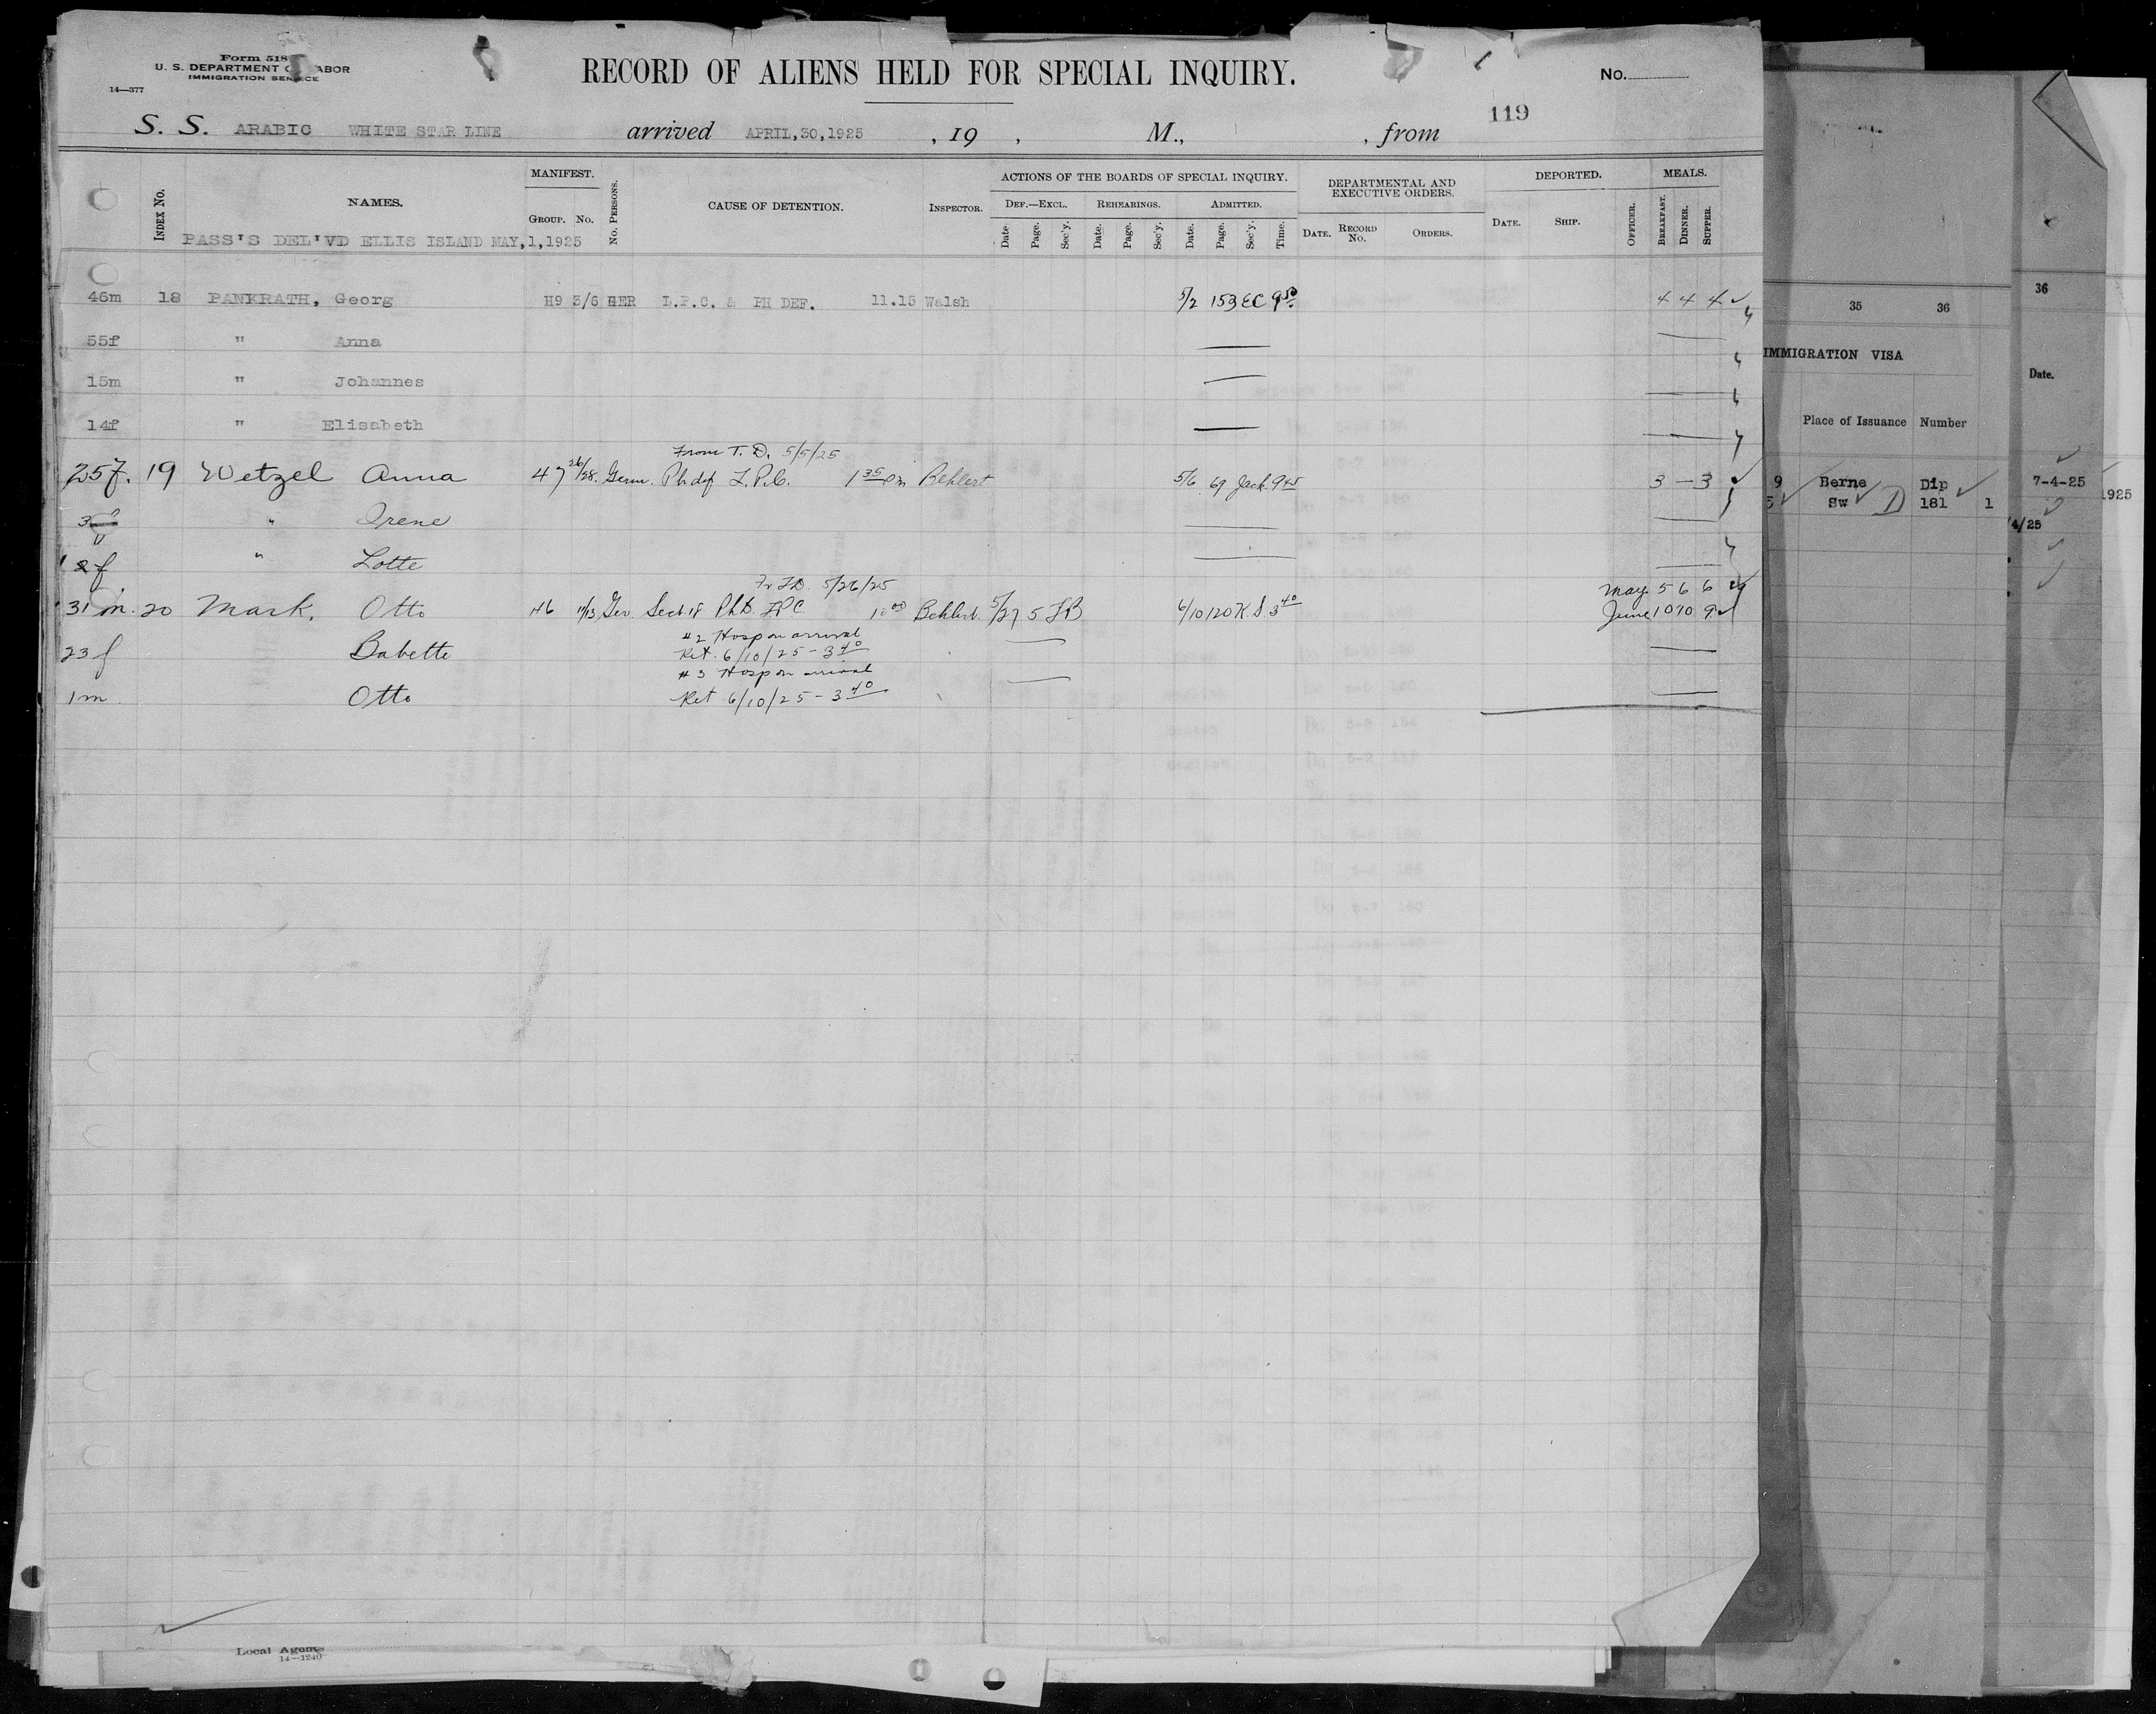 Form 518
U. S. DEPARTMENT OF LABOR
IMMIGRATION SERVICE
14—377
RECORD OF ALIENS HELD FOR SPECIAL INQUIRY.
No.
119
S. S. ARABIC WHITE STAR LINE arrived APRIL,30,1925 , 19 , M., , from
INDEX NO. NAMES. MANIFEST. GROUP. NO. NO. PERSONS. CAUSE OF DETENTION. INSPECTOR.
ACTIONS OF THE BOARDS OF SPECIAL INQUIRY. DEF.—EXCL. REHEARINGS. ADMITTED.
Date. Page. Sec'y. Date. Page. Sec'y. Date. Page. Sec'y. Time.
DEPARTMENTAL AND EXECUTIVE ORDERS. DATE. RECORD NO. ORDERS.
DEPORTED. DATE. SHIP. OFFICER. MEALS. BREAKFAST. DINNER. SUPPER.
PASS'S DEL'VD ELLIS ISLAND MAY,1,1925
46m 18 PANKRATH, Georg H9 3/6 GER L.P.C. & PH DEF. 11.15 Walsh 5/2 153 EC 9 50 4 4 4
55f " Anna
15m " Johannes
14f " Elisabeth
From T. D. 5/5/25
25f. 19 Wetzel Anna 47 26/28 Germ. Ph def L.P.C. 1 35 pm Behlert 5/6 69 Jack. 9 45 3 — 3
3 " Irene
f " Lotte
Fr TD. 5/26/25
31 m. 20 Mark, Otto H6 11/13 Ger Sect. 18 Ph.D. LPC 10 00 Behlert 5/27 5 6/10 120 K.S. 3 40 May 5 6 6
June 10 10 9
#2 Hosp on arrival
23f Babette Ret. 6/10/25 – 3 40
#3 Hosp on arrival
1m Otto Ret 6/10/25 – 3 40
35 36
IMMIGRATION VISA
Place of Issuance Number
9 Berne Dip
Sw D 181 1
36
Date.
7-4-25
1925
4/25
Local Agents
14—1240